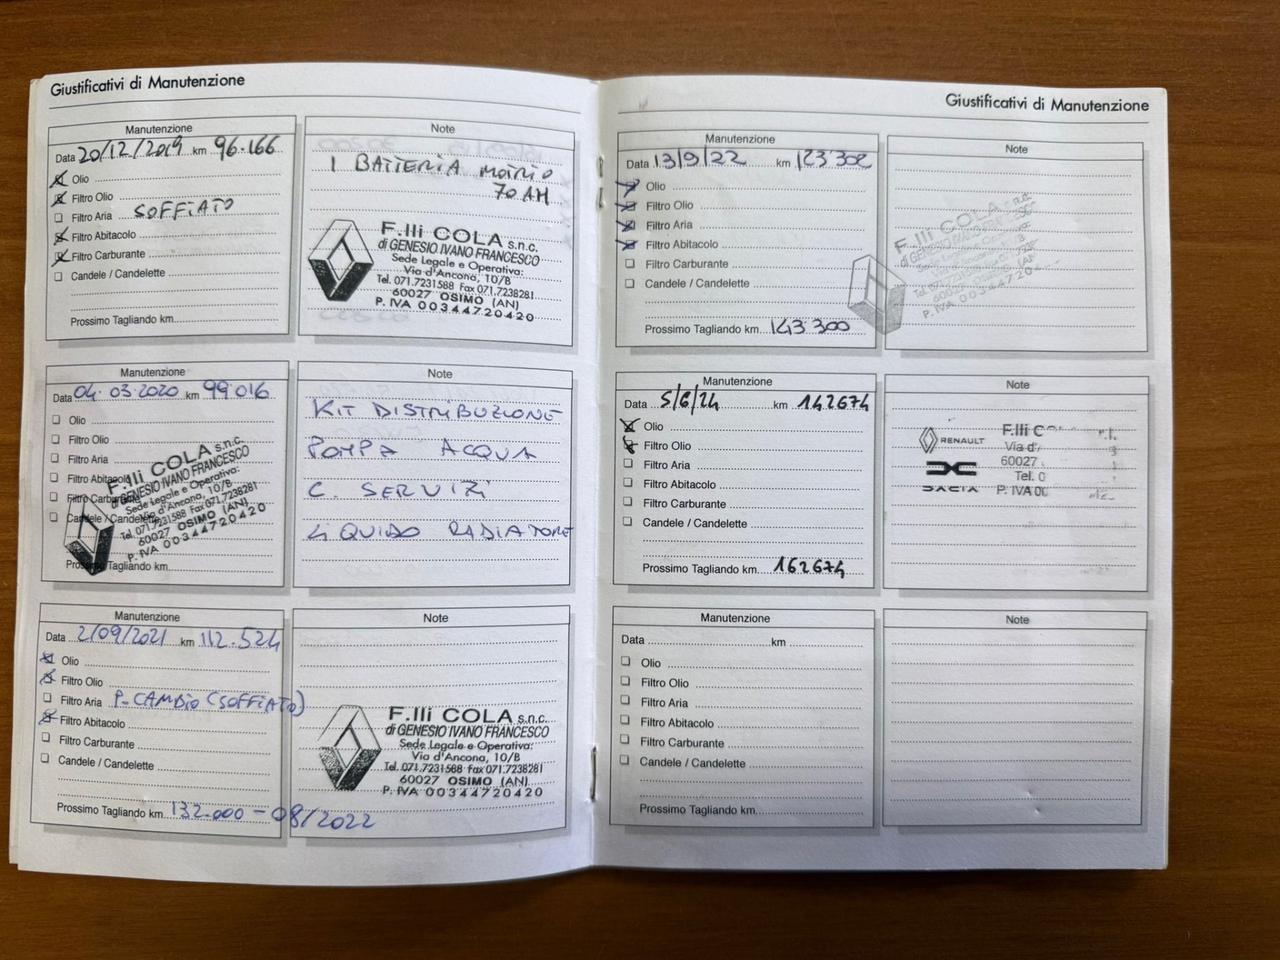 Giustificativi di Manutenzione
Manutenzione
Data 20/12/2019 km 96.166
Olio
Filtro Olio
Filtro Aria SOFFIATO
Filtro Abitacolo
Filtro Carburante
Candele / Candelette
Prossimo Tagliando km
Note
1 BATTERIA
70 AH
F.lli COLA s.n.c.
di GENESIO IVANO FRANCESCO
Sede Legale e Operativa:
Via d'Ancona, 10/B
Tel. 071.7231588 Fax 071.7238281
60027 OSIMO (AN)
P. IVA 00344720420
Manutenzione
Data 04.03.2020 km 99.016
Olio
Filtro Olio
Filtro Aria
Filtro Abitacolo
Filtro Carburante
Candele / Candelette
Prossimo Tagliando km
F.lli COLA s.n.c.
di GENESIO IVANO FRANCESCO
Sede Legale e Operativa:
Via d'Ancona, 10/B
Tel. 071.7231588 Fax 071.7238281
60027 OSIMO (AN)
P. IVA 00344720420
Note
KIT DISTRIBUZIONE
POMPA ACQUA
C. SERVIZI
LIQUIDO RADIATORE
Manutenzione
Data 2/09/2021 km 112.524
Olio
Filtro Olio
Filtro Aria P. CAMBIO (SOFFIATO)
Filtro Abitacolo
Filtro Carburante
Candele / Candelette
Prossimo Tagliando km 132.000 - 08/2022
Note
F.lli COLA s.n.c.
di GENESIO IVANO FRANCESCO
Sede Legale e Operativa:
Via d'Ancona, 10/B
Tel. 071.7231588 Fax 071.7238281
60027 OSIMO (AN)
P. IVA 00344720420
Giustificativi di Manutenzione
Manutenzione
Data 13/9/22 km 123'302
Olio
Filtro Olio
Filtro Aria
Filtro Abitacolo
Filtro Carburante
Candele / Candelette
Prossimo Tagliando km 143'300
Note
F.lli COLA s.n.c.
60027 OSIMO (AN)
P. IVA 00344720420
Manutenzione
Data 5/6/24 km 142674
Olio
Filtro Olio
Filtro Aria
Filtro Abitacolo
Filtro Carburante
Candele / Candelette
Prossimo Tagliando km 162674
Note
RENAULT
DACIA
F.lli
Via
60027
Tel.
P. IVA
Manutenzione
Data km
Olio
Filtro Olio
Filtro Aria
Filtro Abitacolo
Filtro Carburante
Candele / Candelette
Prossimo Tagliando km
Note